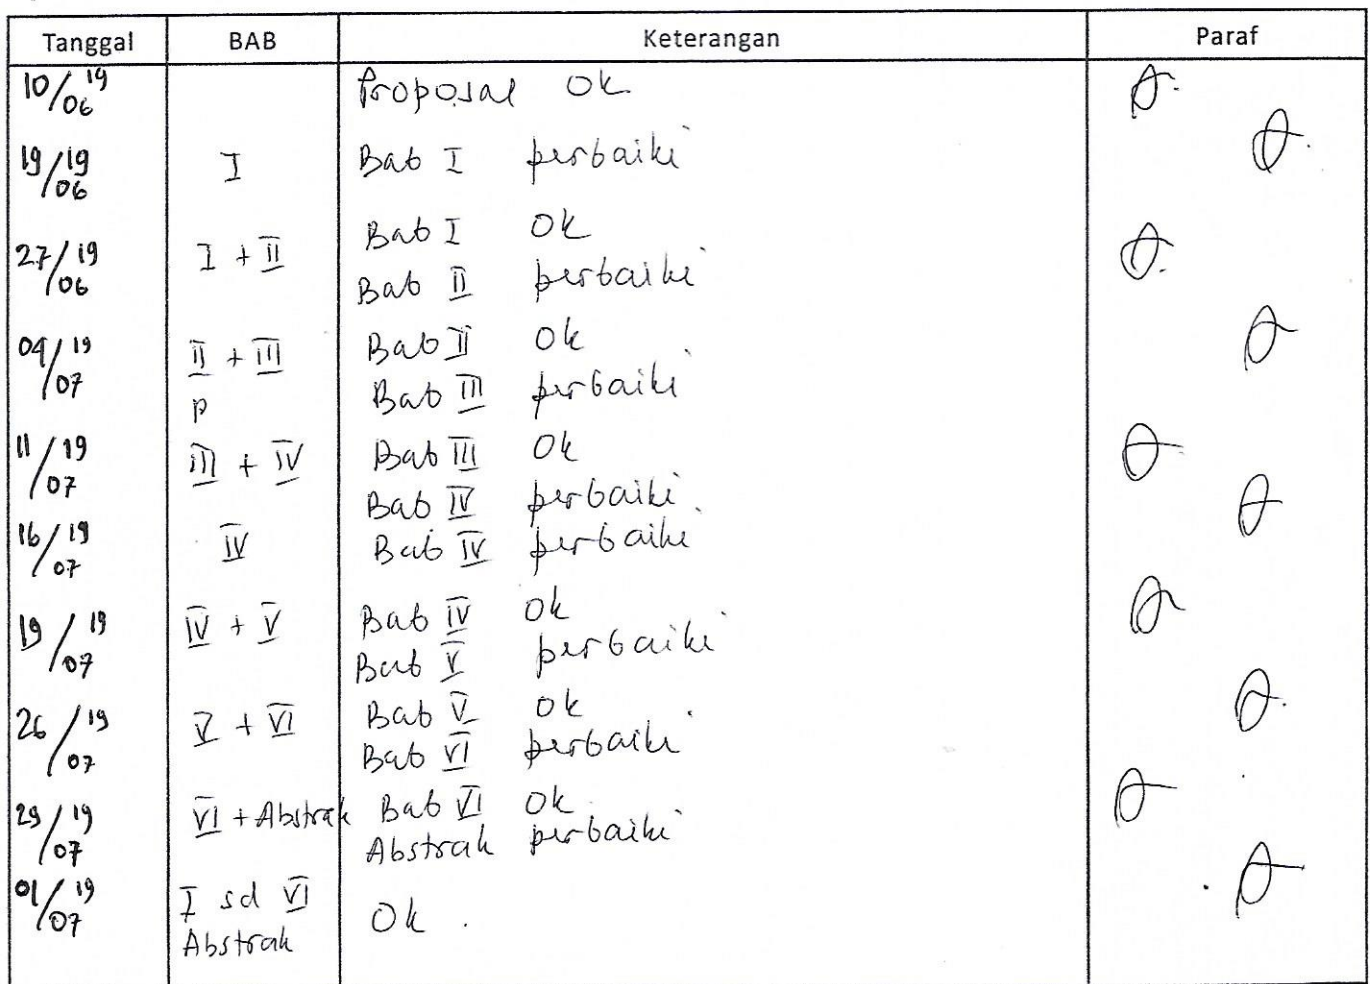 Tanggal BAB Keterangan Paraf
10/06 19 Proposal Ok
19/06 19 I Bab I perbaiki
27/06 19 I + II Bab I Ok
Bab II perbaiki
04/07 19 II + III Bab II Ok
P Bab III perbaiki
11/07 19 III + IV Bab III Ok
Bab IV perbaiki
16/07 19 IV Bab IV perbaiki
19/07 19 IV + V Bab IV Ok
Bab V perbaiki
26/07 19 V + VI Bab V Ok
Bab VI perbaiki
29/07 19 VI + Abstrak Bab VI Ok
Abstrak perbaiki
01/07 19 I sd VI Ok.
Abstrak